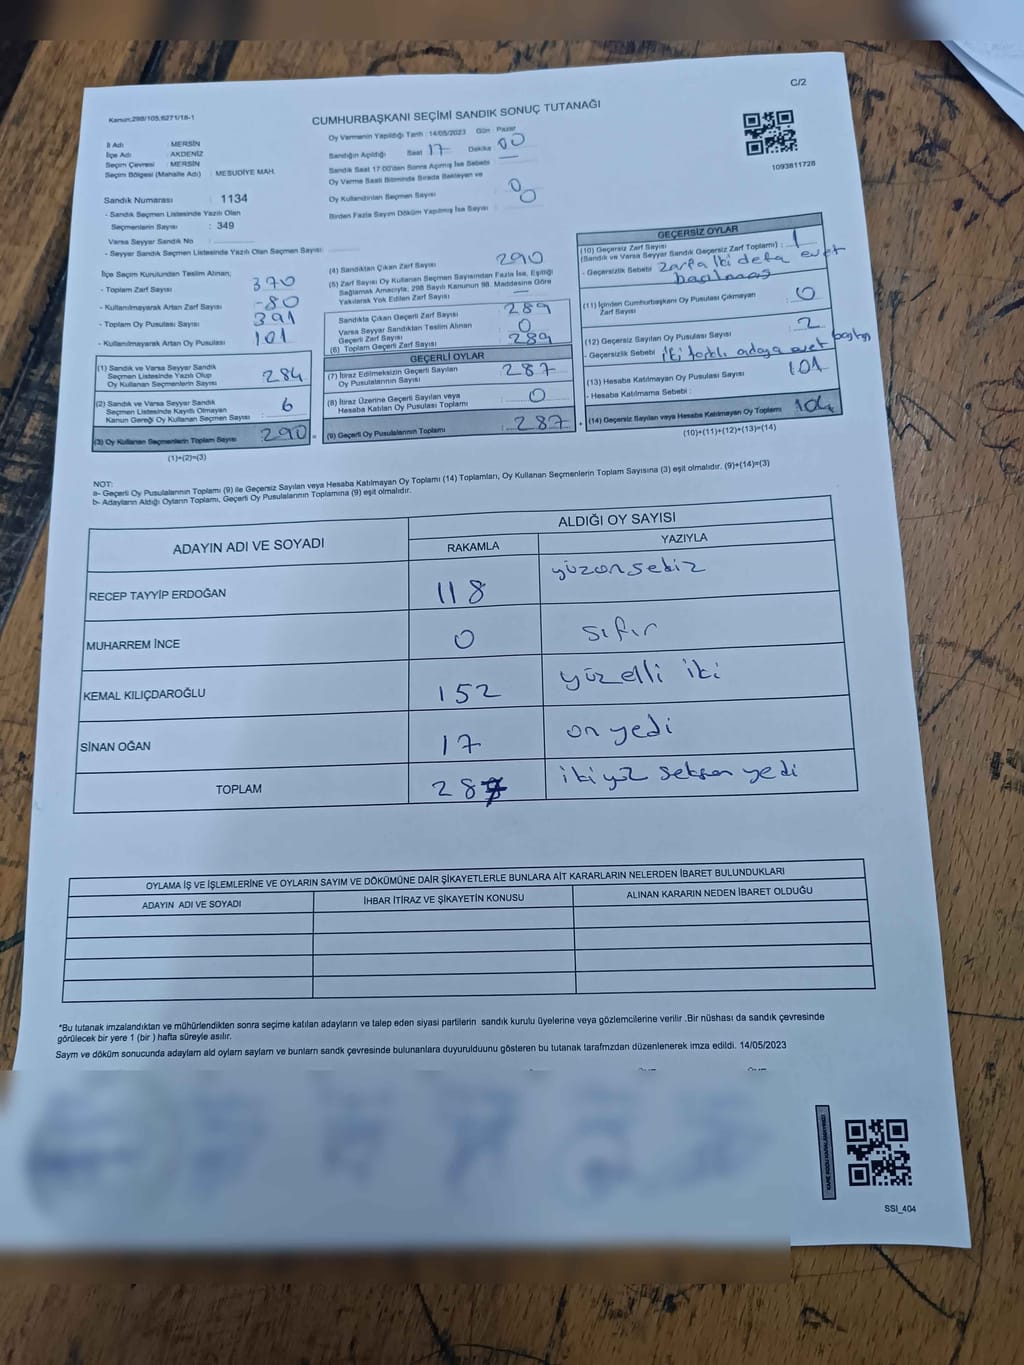 C/2
Kanun:298/105;6271/18-1
CUMHURBAŞKANI SEÇİMİ SANDIK SONUÇ TUTANAĞI
İl Adı : MERSİN
İlçe Adı : AKDENİZ
Seçim Çevresi : MERSİN
Seçim Bölgesi (Mahalle Adı) : MESUDİYE MAH.
Oy Vermenin Yapıldığı Tarih : 14/05/2023 Gün : Pazar
Sandığın Açıldığı Saat 17 Dakika 00
Sandık Saat 17:00'den Sonra Açılmış İse Sebebi —
Oy Verme Saati Bitiminde Sırada Bekleyen ve
Oy Kullandırılan Seçmen Sayısı 0
Birden Fazla Sayım Döküm Yapılmış İse Sayısı : 0
1093811728
Sandık Numarası : 1134
- Sandık Seçmen Listesinde Yazılı Olan
Seçmenlerin Sayısı : 349
Varsa Seyyar Sandık No
- Seyyar Sandık Seçmen Listesinde Yazılı Olan Seçmen Sayısı:
İlçe Seçim Kurulundan Teslim Alınan;
- Toplam Zarf Sayısı 370
- Kullanılmayarak Artan Zarf Sayısı -80
- Toplam Oy Pusulası Sayısı 391
- Kullanılmayarak Artan Oy Pusulası 101
(1) Sandık ve Varsa Seyyar Sandık
Seçmen Listesinde Yazılı Olup
Oy Kullanan Seçmenlerin Sayısı 284
(2) Sandık ve Varsa Seyyar Sandık
Seçmen Listesinde Kayıtlı Olmayan
Kanun Gereği Oy Kullanan Seçmen Sayısı 6
(3) Oy Kullanan Seçmenlerin Toplam Sayısı 290
(1)+(2)=(3)
(4) Sandıktan Çıkan Zarf Sayısı 290
(5) Zarf Sayısı Oy Kullanan Seçmen Sayısından Fazla İse, Eşitliği
Sağlamak Amacıyla; 298 Sayılı Kanunun 98. Maddesine Göre
Yakılarak Yok Edilen Zarf Sayısı —
Sandıkta Çıkan Geçerli Zarf Sayısı : 289
Varsa Seyyar Sandıktan Teslim Alınan
Geçerli Zarf Sayısı 0
(6) Toplam Geçerli Zarf Sayısı 289
GEÇERLİ OYLAR
(7) İtiraz Edilmeksizin Geçerli Sayılan
Oy Pusulalarının Sayısı : 287
(8) İtiraz Üzerine Geçerli Sayılan veya
Hesaba Katılan Oy Pusulası Toplamı : 0
= (9) Geçerli Oy Pusulalarının Toplamı : 287
GEÇERSİZ OYLAR
(10) Geçersiz Zarf Sayısı
(Sandık ve Varsa Seyyar Sandık Geçersiz Zarf Toplamı) : 1
- Geçersizlik Sebebi zarfa iki defa evet
basılması
(11) İçinden Cumhurbaşkanı Oy Pusulası Çıkmayan
Zarf Sayısı 0
(12) Geçersiz Sayılan Oy Pusulası Sayısı 2
- Geçersizlik Sebebi iki farklı adaya evet
(13) Hesaba Katılmayan Oy Pusulası Sayısı 101
- Hesaba Katılmama Sebebi :
+ (14) Geçersiz Sayılan veya Hesaba Katılmayan Oy Toplamı 104
(10)+(11)+(12)+(13)=(14)
NOT:
a- Geçerli Oy Pusulalarının Toplamı (9) ile Geçersiz Sayılan veya Hesaba Katılmayan Oy Toplamı (14) Toplamları, Oy Kullanan Seçmenlerin Toplam Sayısına (3) eşit olmalıdır. (9)+(14)=(3)
b- Adayların Aldığı Oyların Toplamı, Geçerli Oy Pusulalarının Toplamına (9) eşit olmalıdır.
ADAYIN ADI VE SOYADI
ALDIĞI OY SAYISI
RAKAMLA YAZIYLA
RECEP TAYYİP ERDOĞAN 118 yüzonsekiz
MUHARREM İNCE 0 sıfır
KEMAL KILIÇDAROĞLU 152 yüzelli iki
SİNAN OĞAN 17 on yedi
TOPLAM 287 ikiyüz seksen yedi
OYLAMA İŞ VE İŞLEMLERİNE VE OYLARIN SAYIM VE DÖKÜMÜNE DAİR ŞİKAYETLERLE BUNLARA AİT KARARLARIN NELERDEN İBARET BULUNDUKLARI
ADAYIN ADI VE SOYADI İHBAR İTİRAZ VE ŞİKAYETİN KONUSU ALINAN KARARIN NEDEN İBARET OLDUĞU
*Bu tutanak imzalandıktan ve mühürlendikten sonra seçime katılan adayların ve talep eden siyasi partilerin sandık kurulu üyelerine veya gözlemcilerine verilir .Bir nüshası da sandık çevresinde
görülecek bir yere 1 (bir ) hafta süreyle asılır.
Saym ve döküm sonucunda adaylarn ald oylarn saylarn ve bunlarn sandk çevresinde bulunanlara duyurulduunu gösteren bu tutanak tarafmzdan düzenlenerek imza edildi. 14/05/2023
SSI_404